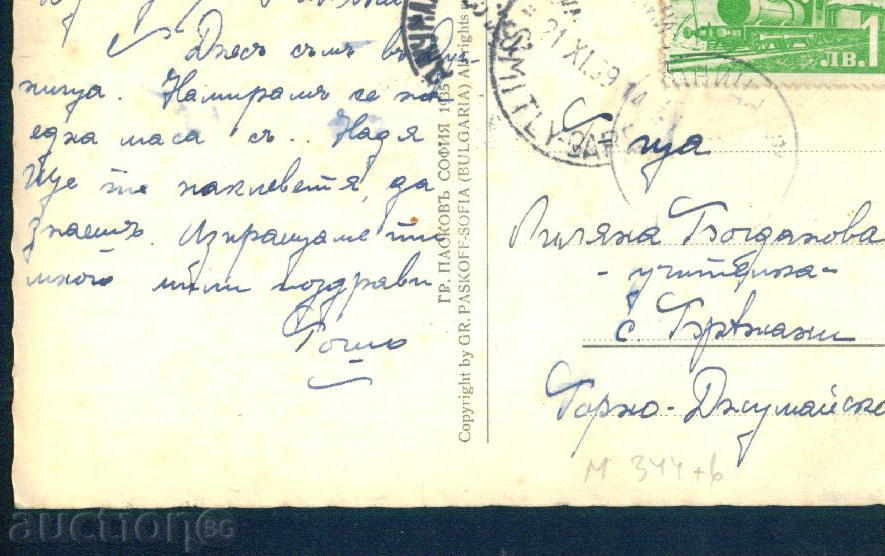 Днесъ съмъ въ
Намирамъ се на
една маса съ.. Надя
Ще те наклеветя, да
знаешъ. Изпращаме ти
много мили поздрави
Гошо
ГР. ПАСКОВЪ СОФИЯ 1935
Copyright by GR. PASKOFF-SOFIA (BULGARIA) All rights
21.XI.39.14
SIMITLY-GAR
ЛВ.1
Г-ца
Лиляна Богданова
- учителка -
с. Бржани
Горно-Джумайско
М 344+6
auction BG